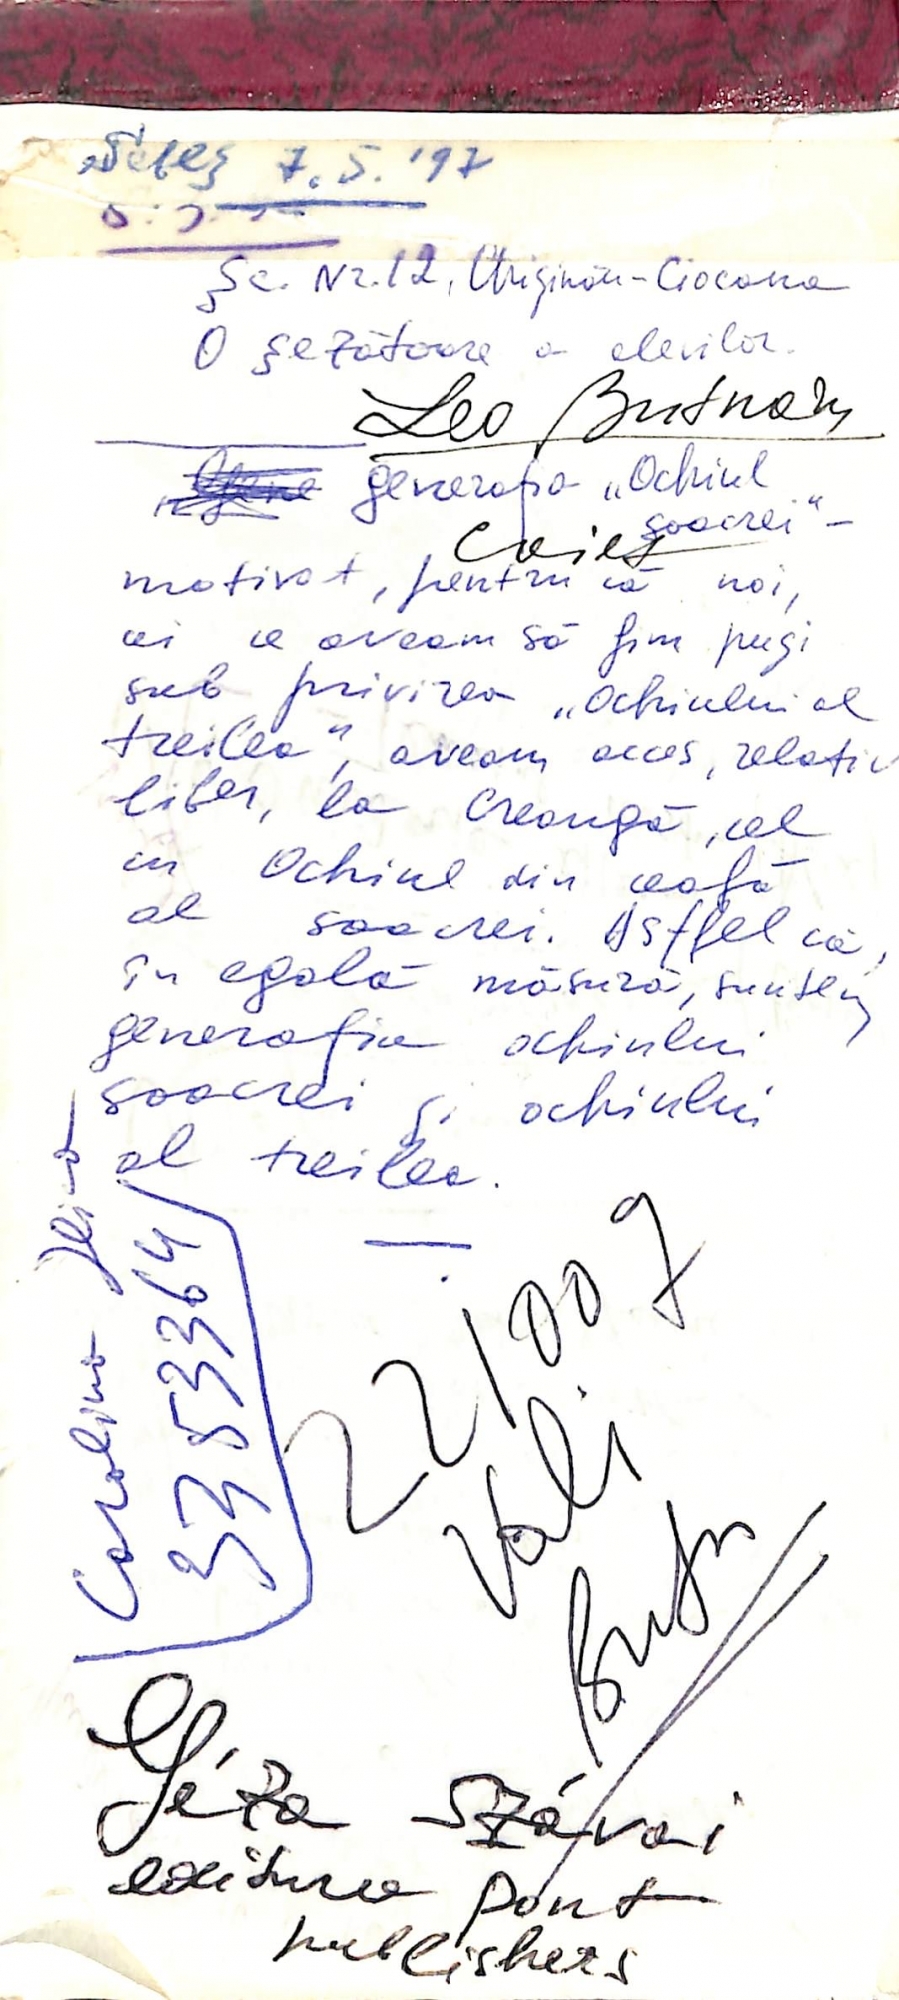 Sebeș 7.5.'97
Șc. Nr. 12, Chișinău-Ciocana
O șezătoare a elevilor.
Leo Butnaru
generația „Ochiul
soacrei“ –
Caiet
motivat, pentru că noi,
cei ce aveam să fim puși
sub privirea „Ochiului al
treilea“, aveam acces, relativ
liber, la Creangă, cel
cu Ochiul din ceafă
al soacrei. Astfel că,
în egală măsură, suntem
generația ochiului
soacrei și ochiului
al treilea.
Carolina Ilica
3353364
221007
Vali
Butn
Géza Szávai
editura Pont
publishers